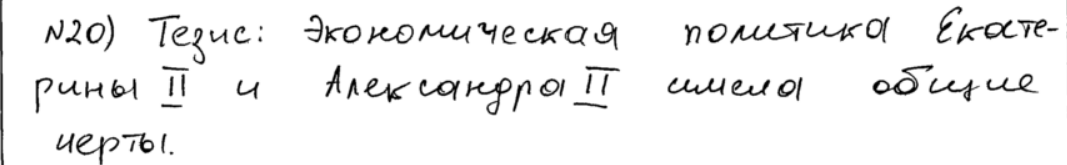 №20) Тезис: Экономическая политика Екате-
рины II и Александра II имела общие
черты.